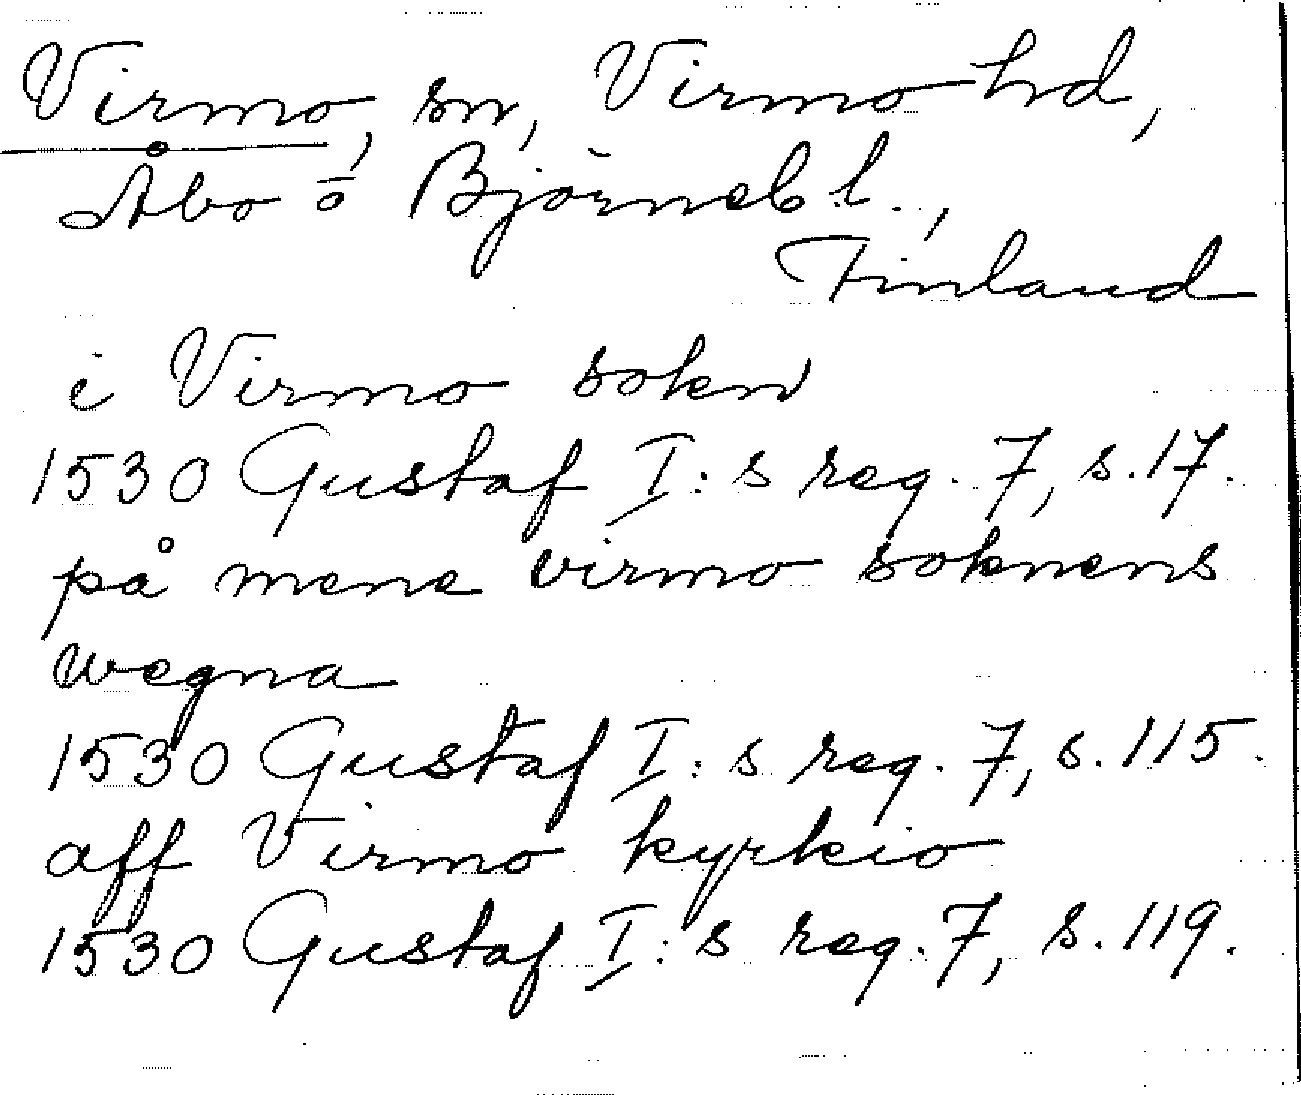 Virmo, sn, Virmo hd,
Åbo o Björneb l.,
Finland
i Virmo sokn
1530 Gustaf I:s reg. 7, s. 17.
på mene virmo soknens
wegna
1530 Gustaf I:s reg. 7, s. 115.
aff Virmo kyrkio
1530 Gustaf I:s reg. 7, s. 119.